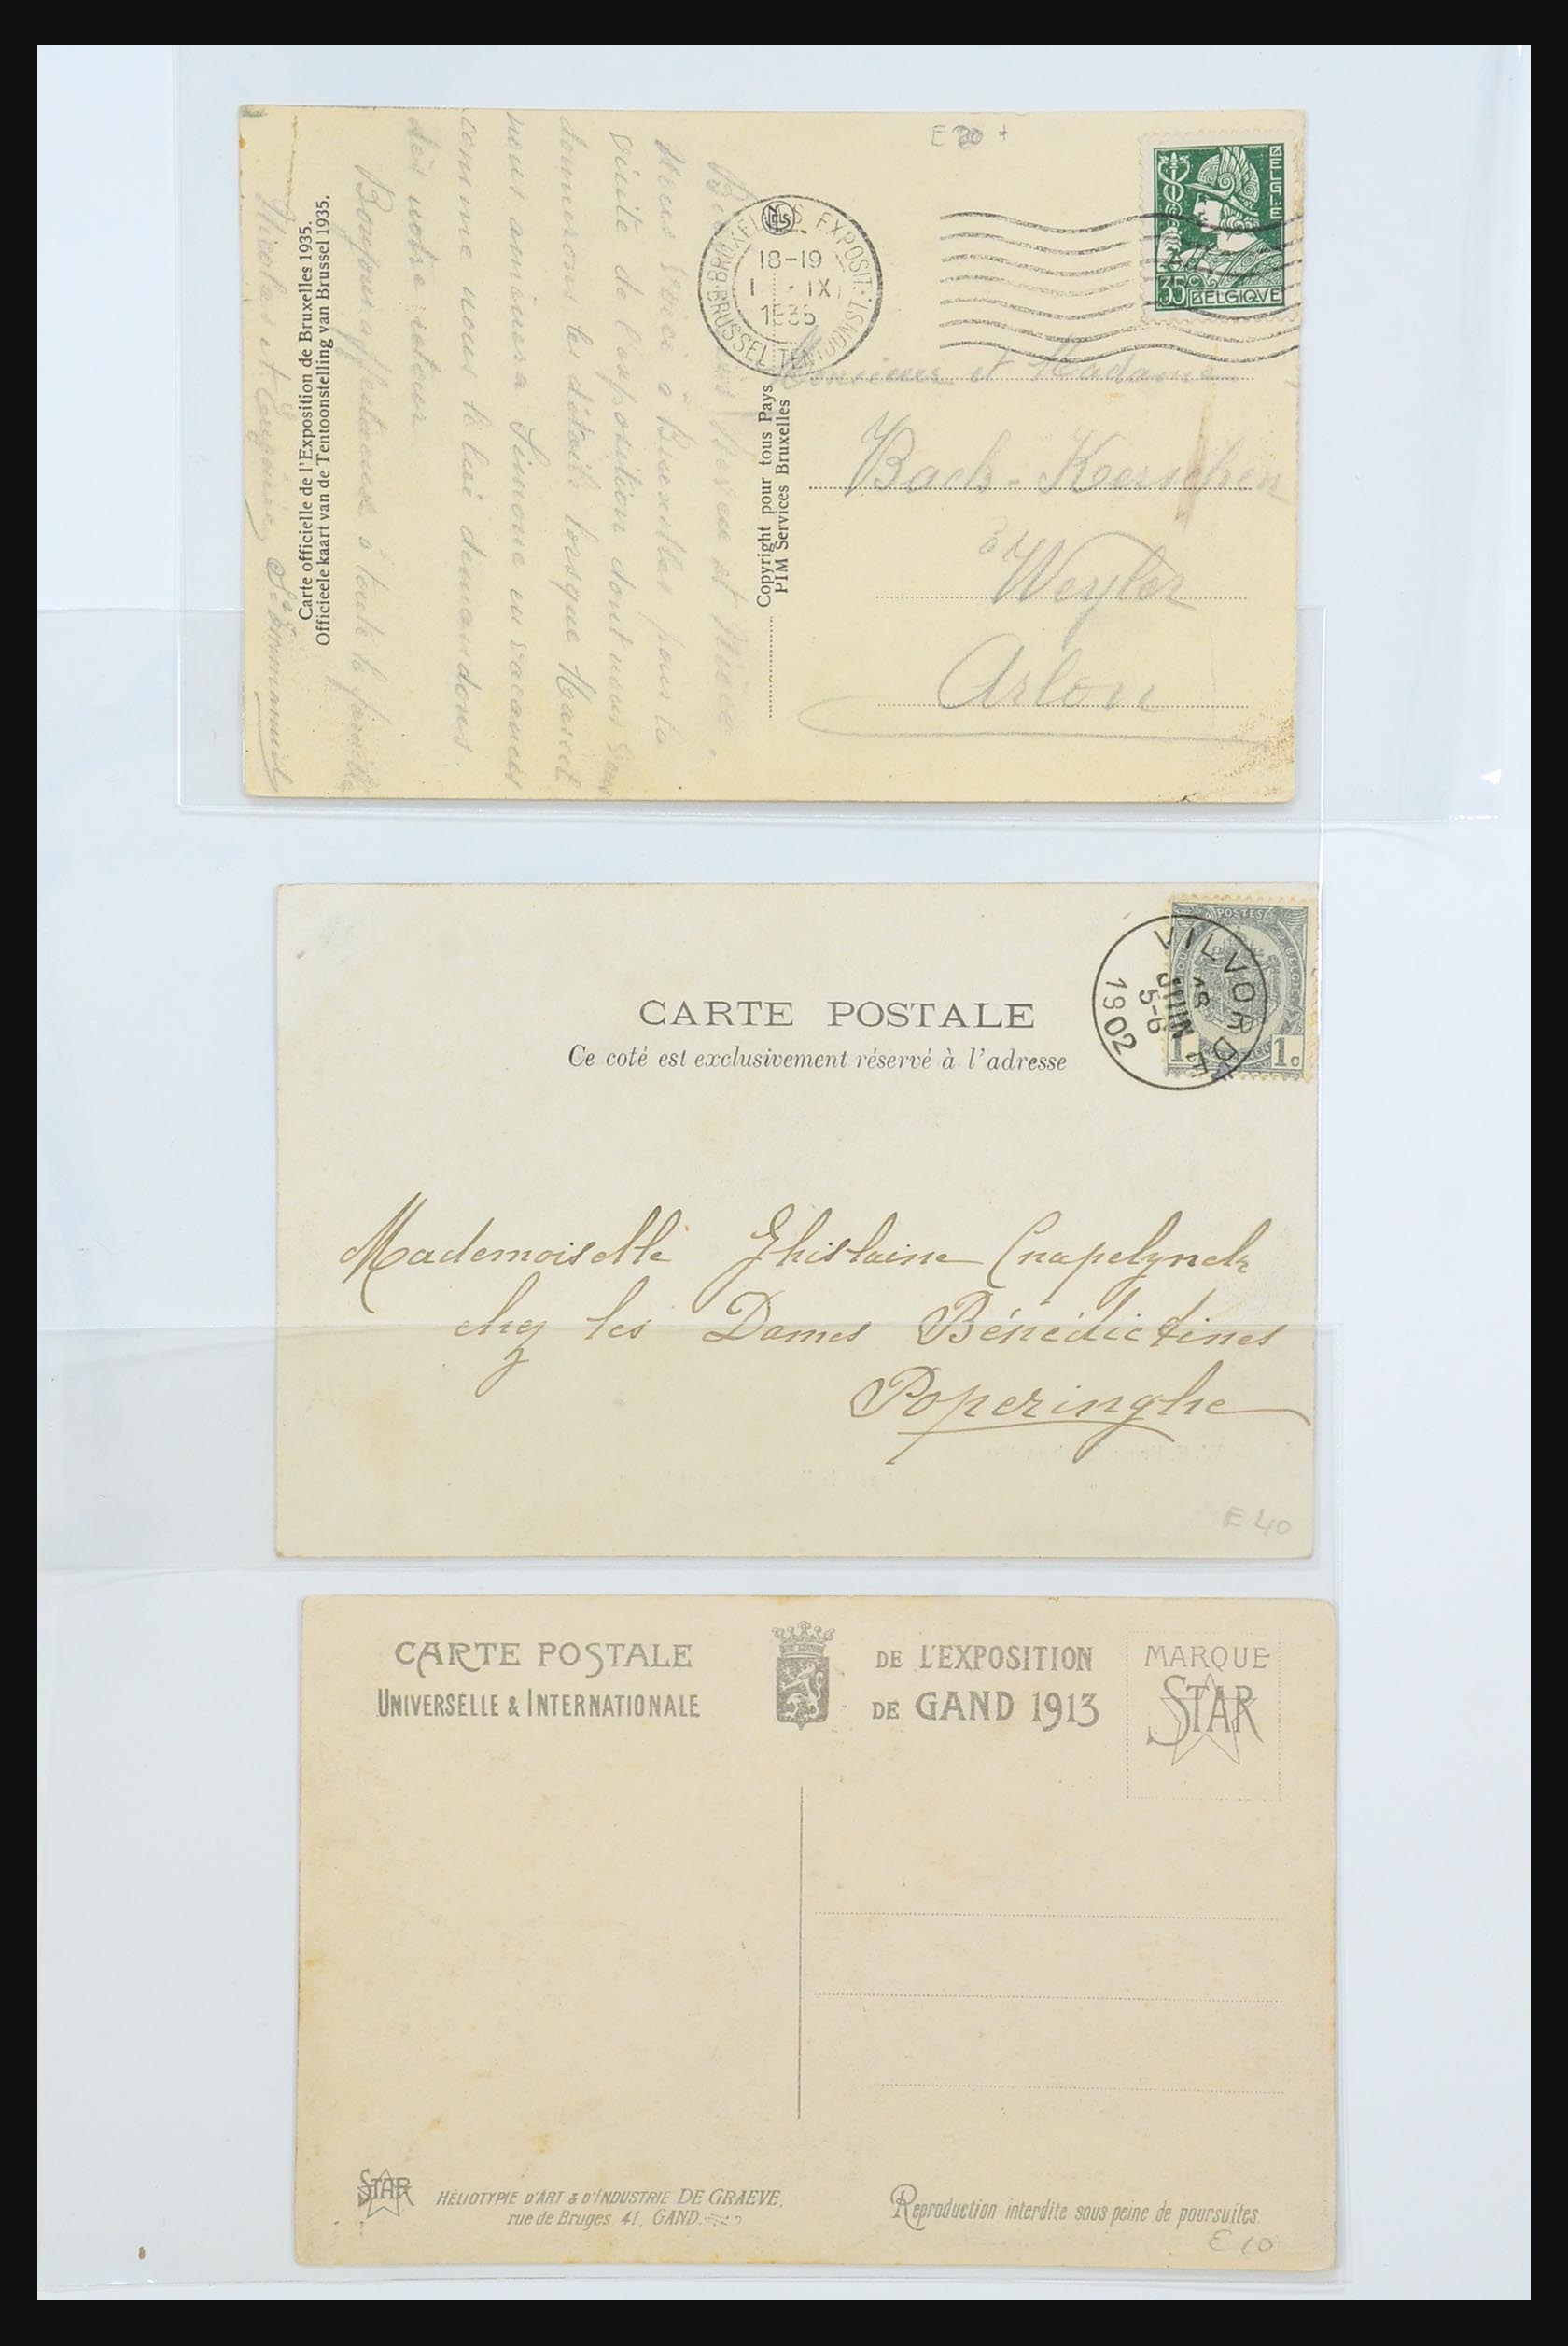 E 20 +
BELGIË
35c BELGIQUE
BRUXELLES EXPOSIT.
NELS
18-19
1 IX
1935
BRUSSEL TENTOONST.
Nous voici à Bruxelles pour la
visite de l'exposition dont nous vous
donnerons les détails lorsque Marcel
nous amènera Simone en vacances
comme nous le lui demandons
dès notre retour
Bonjour affectueux à toute la famille
Nicolas et Eugénie
Carte officielle de l'Exposition de Bruxelles 1935.
Officieele kaart van de Tentoonstelling van Brussel 1935.
Copyright pour tous Pays
PIM Services Bruxelles
Monsieur et Madame
Bach-Kerschen
à Weyler
Arlon
POSTES
1c 1c
VILVORDE
18
JUIN
5-6
1902
CARTE POSTALE
Ce coté est exclusivement réservé à l'adresse
Mademoiselle Ghislaine Cnapelynck
chez les Dames Bénédictines
Poperinghe
E 40
CARTE POSTALE
UNIVERSELLE & INTERNATIONALE
DE L'EXPOSITION
DE GAND 1913
MARQUE
STAR
STAR
HÉLIOTYPIE D'ART & D'INDUSTRIE DE GRAEVE,
rue de Bruges 41, GAND.
Reproduction interdite sous peine de poursuites.
E 10